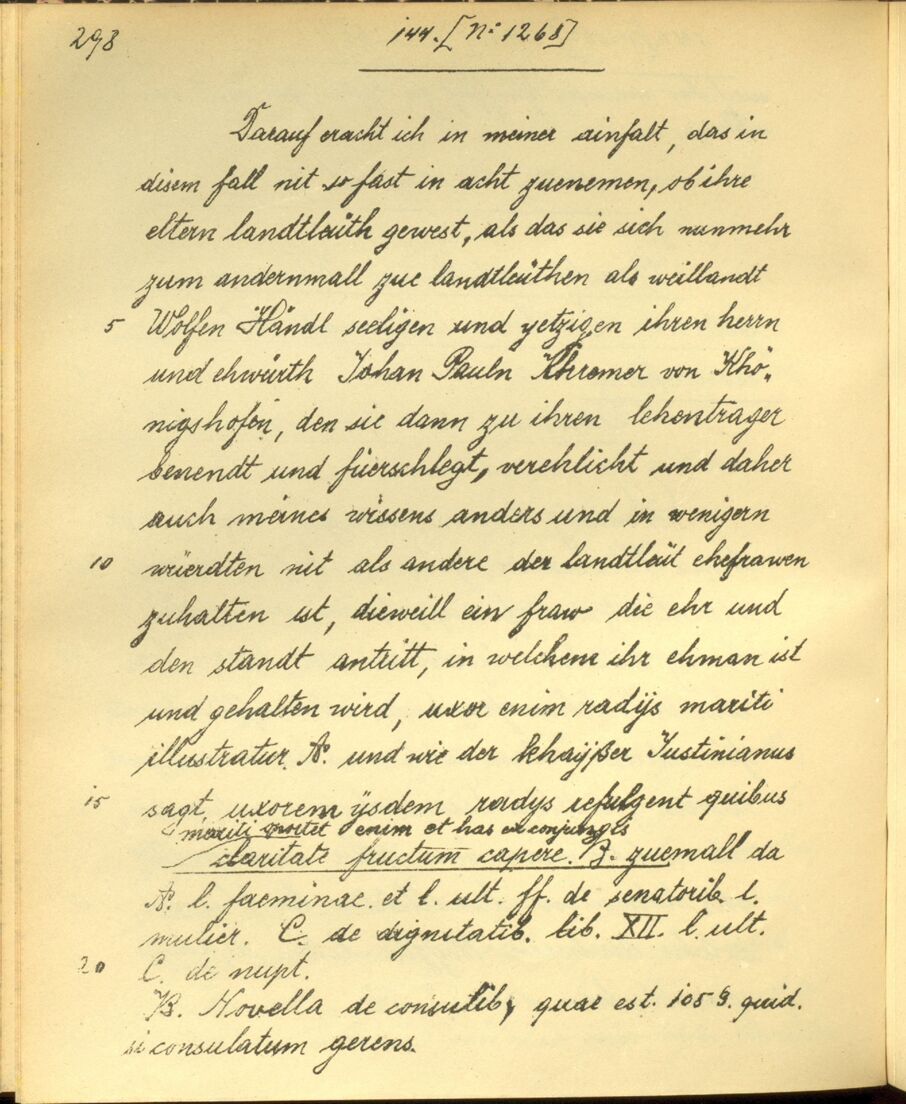 298
144. [N: 1268]
Darauf eracht ich in meiner ainfalt, das in
disem fall nit so fast in acht zuenemen, ob ihre
eltern landtleüth gewest, als das sie sich nunmehr
zum andernmall zue landtleüthen als weillandt
5 Wolfen Händl seeligen und yetzigen ihren herrn
und ehwürth Johan Pauln Khremer von Khö„
nigshofen, den sie dann zu ihren lehentrager
benendt und füerschlegt, verehlicht und daher
auch meines wissens anders und in wenigern
10 würerdten nit als andere der landtleüt ehefrawen
zuhalten ist, dieweill ein fraw die ehr und
den standt antritt, in welchem ihr ehman ist
und gehalten wird, uxor enim radijs mariti
illustratur. A. und wie der khayßer Justinianus
15 sagt, uxorem ijsdem radys refulgent quibus
mariti oportet enim et has ex conjungis
claritate fructum capere. B. zuemall da
A. l. faeminae. et l. ult. ff. de senatorib. l.
mulier. C. de dignitatib. lib. XII. l. ult.
20 C. de nupt.
B. Novella de consulib, quae est. 105 §. quid.
si consulatum gerens.